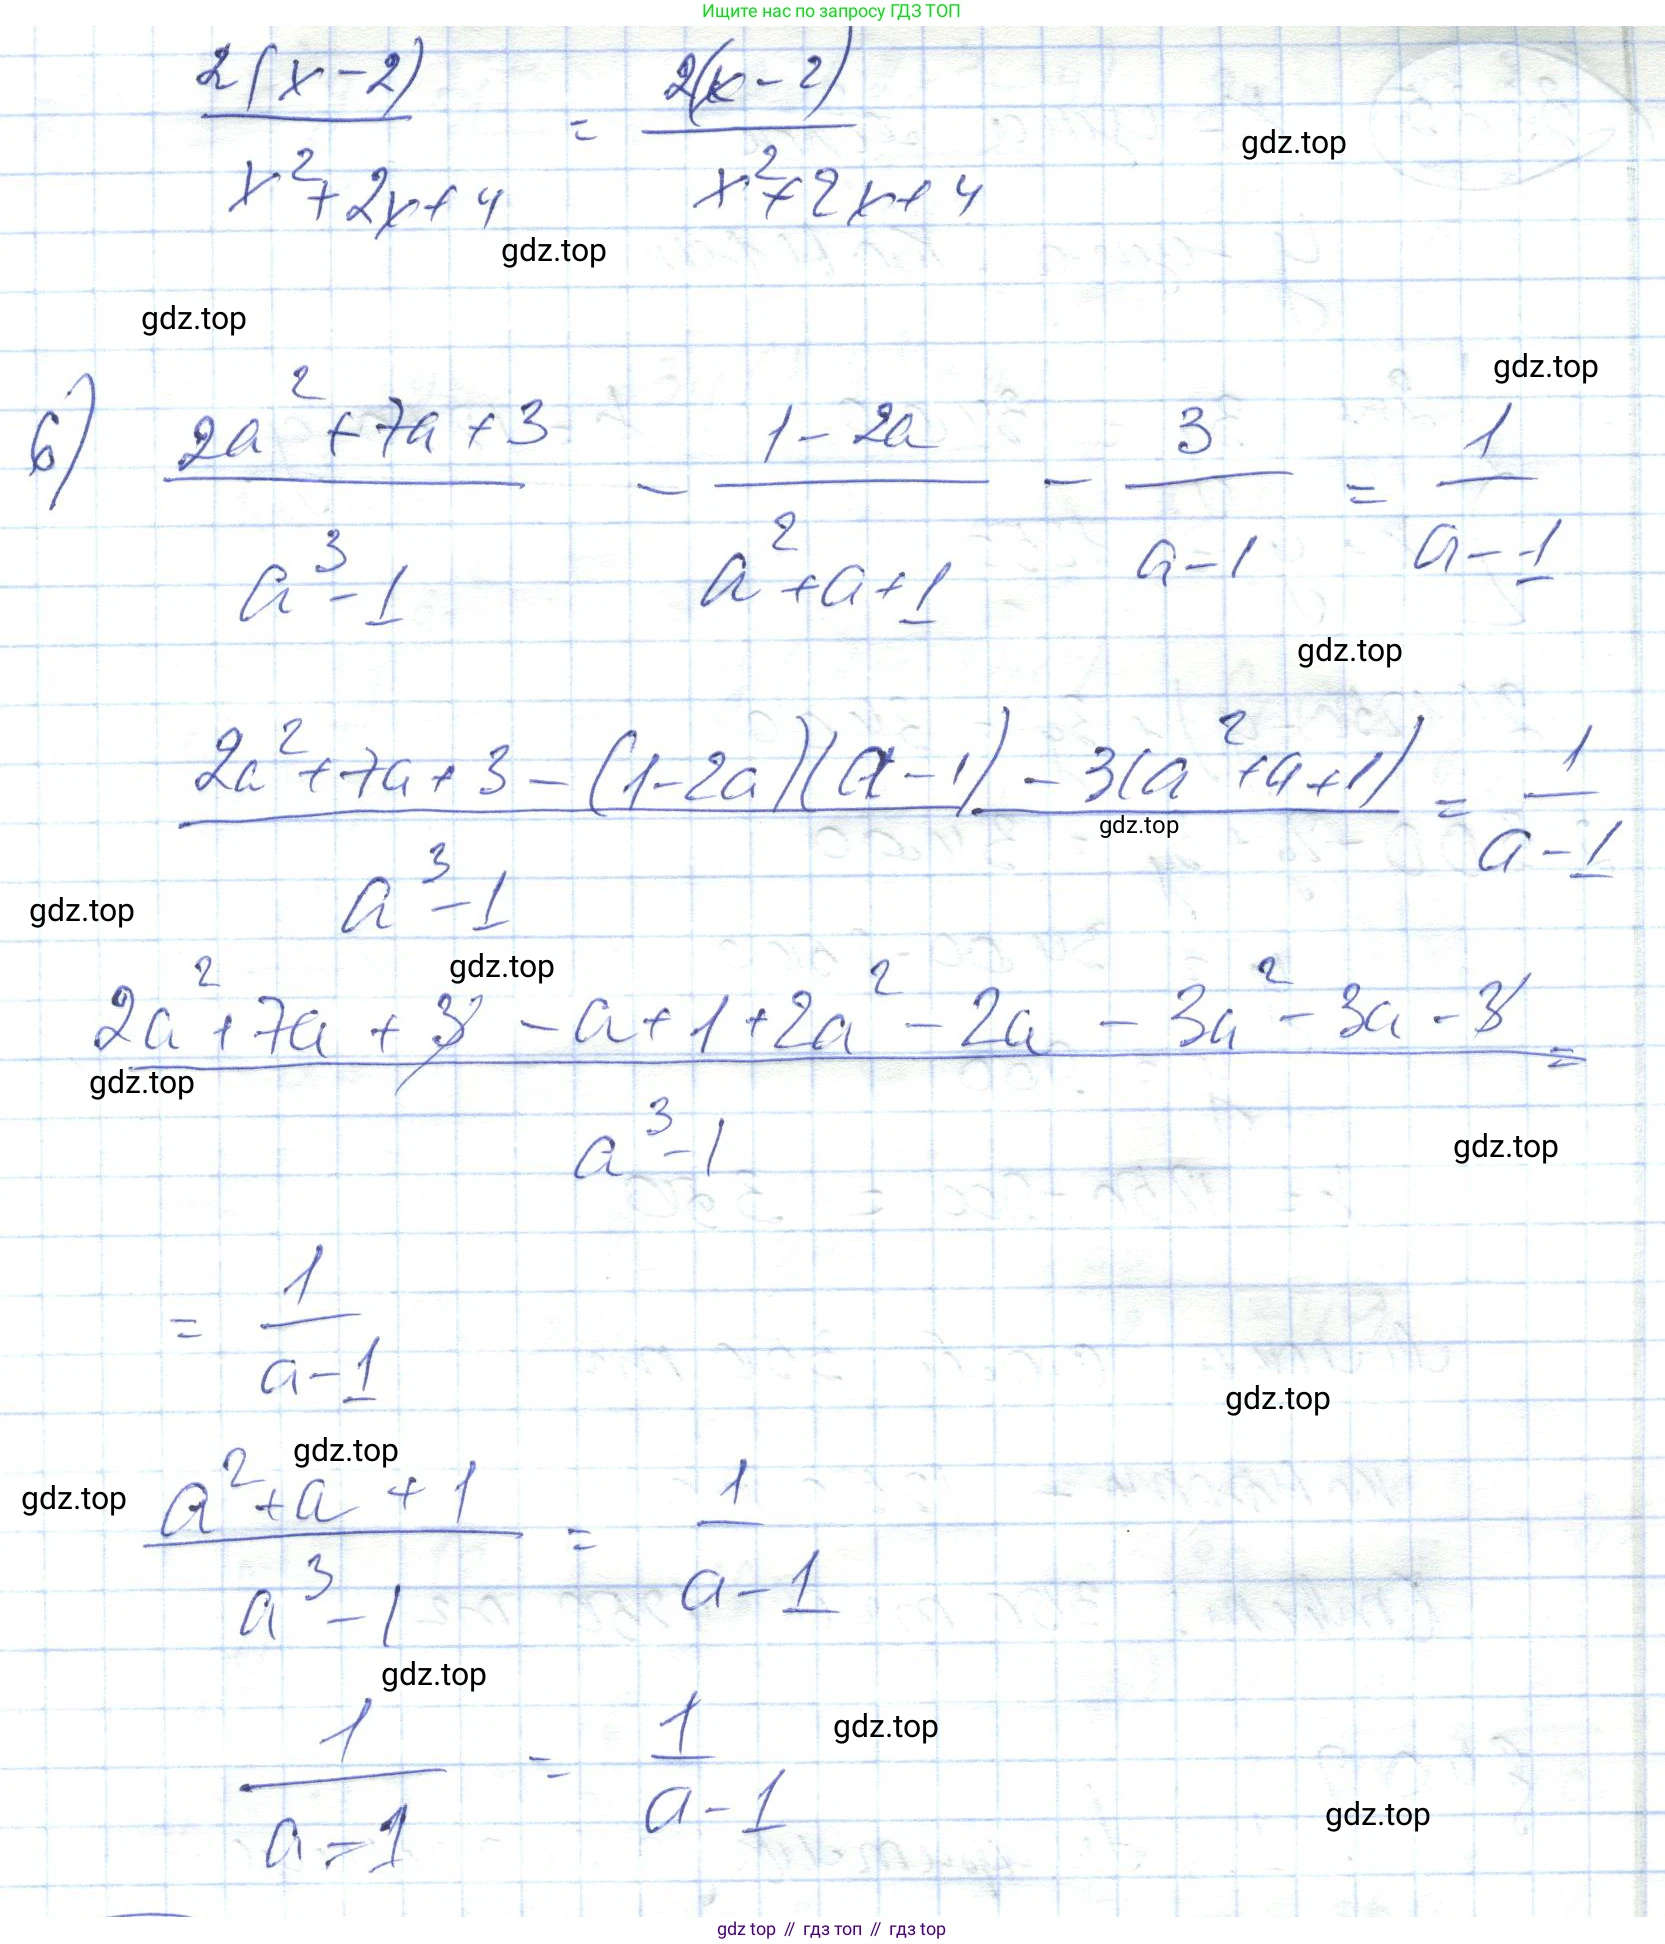 Ищите нас по запросу ГДЗ ТОП
2(x-2) / x²+2x+4 = 2(x-2) / x²+2x+4
gdz.top
gdz.top
gdz.top
gdz.top
б) 2a²+7a+3 / a³-1 - 1-2a / a²+a+1 - 3 / a-1 = 1 / a-1
gdz.top
2a²+7a+3-(1-2a)(a-1)-3(a²+a+1) / a³-1 = 1 / a-1
gdz.top
gdz.top
gdz.top
2a²+7a+3-a+1+2a²-2a-3a²-3a-3 / a³-1 =
gdz.top
gdz.top
= 1 / a-1
gdz.top
gdz.top
gdz.top
a²+a+1 / a³-1 = 1 / a-1
gdz.top
1 / a-1 = 1 / a-1
gdz.top
gdz.top
gdz top // гдз топ // гдз top